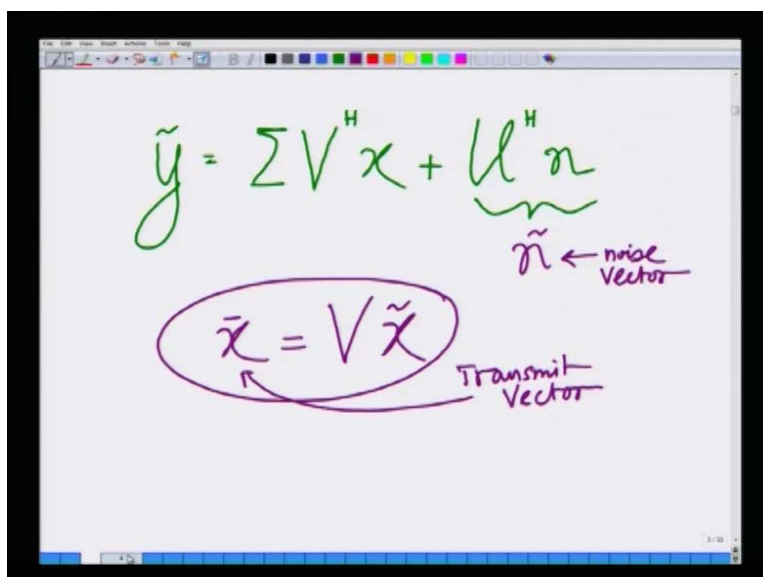 File Edit View Insert Actions Tools Help
ỹ = Σ V^H x + U^H n
ñ ← noise
vector
x̄ = V x̃
Transmit
Vector